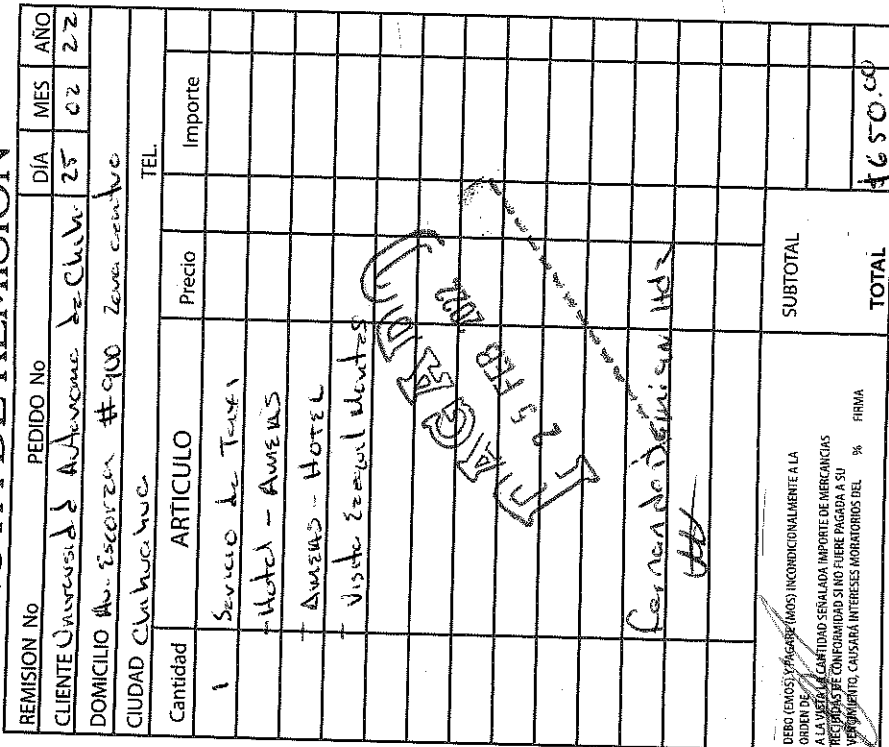 NOTA DE REMISION
REMISION No PEDIDO No DÍA MES AÑO
CLIENTE Universidad Autonoma de Chih. 25 02 22
DOMICILIO Av. Escorza #900 Zona centro
CIUDAD Chihuahua TEL.
Cantidad ARTICULO Precio Importe
1 Servicio de Taxi
- Hotel - AMEXAS
- AMEXAS - HOTEL
- Visita Ezequiel Montes
PAGADO
25 FEB 2022
Fernando Demian Hdz
SUBTOTAL
TOTAL $650.00
DEBO (EMOS) Y PAGARE (MOS) INCONDICIONALMENTE A LA
ORDEN DE
A LA VISTA LA CANTIDAD SEÑALADA IMPORTE DE MERCANCIAS
RECIBIDAS DE CONFORMIDAD SI NO FUERE PAGADA A SU
VENCIMIENTO, CAUSARÁ INTERESES MORATORIOS DEL % FIRMA